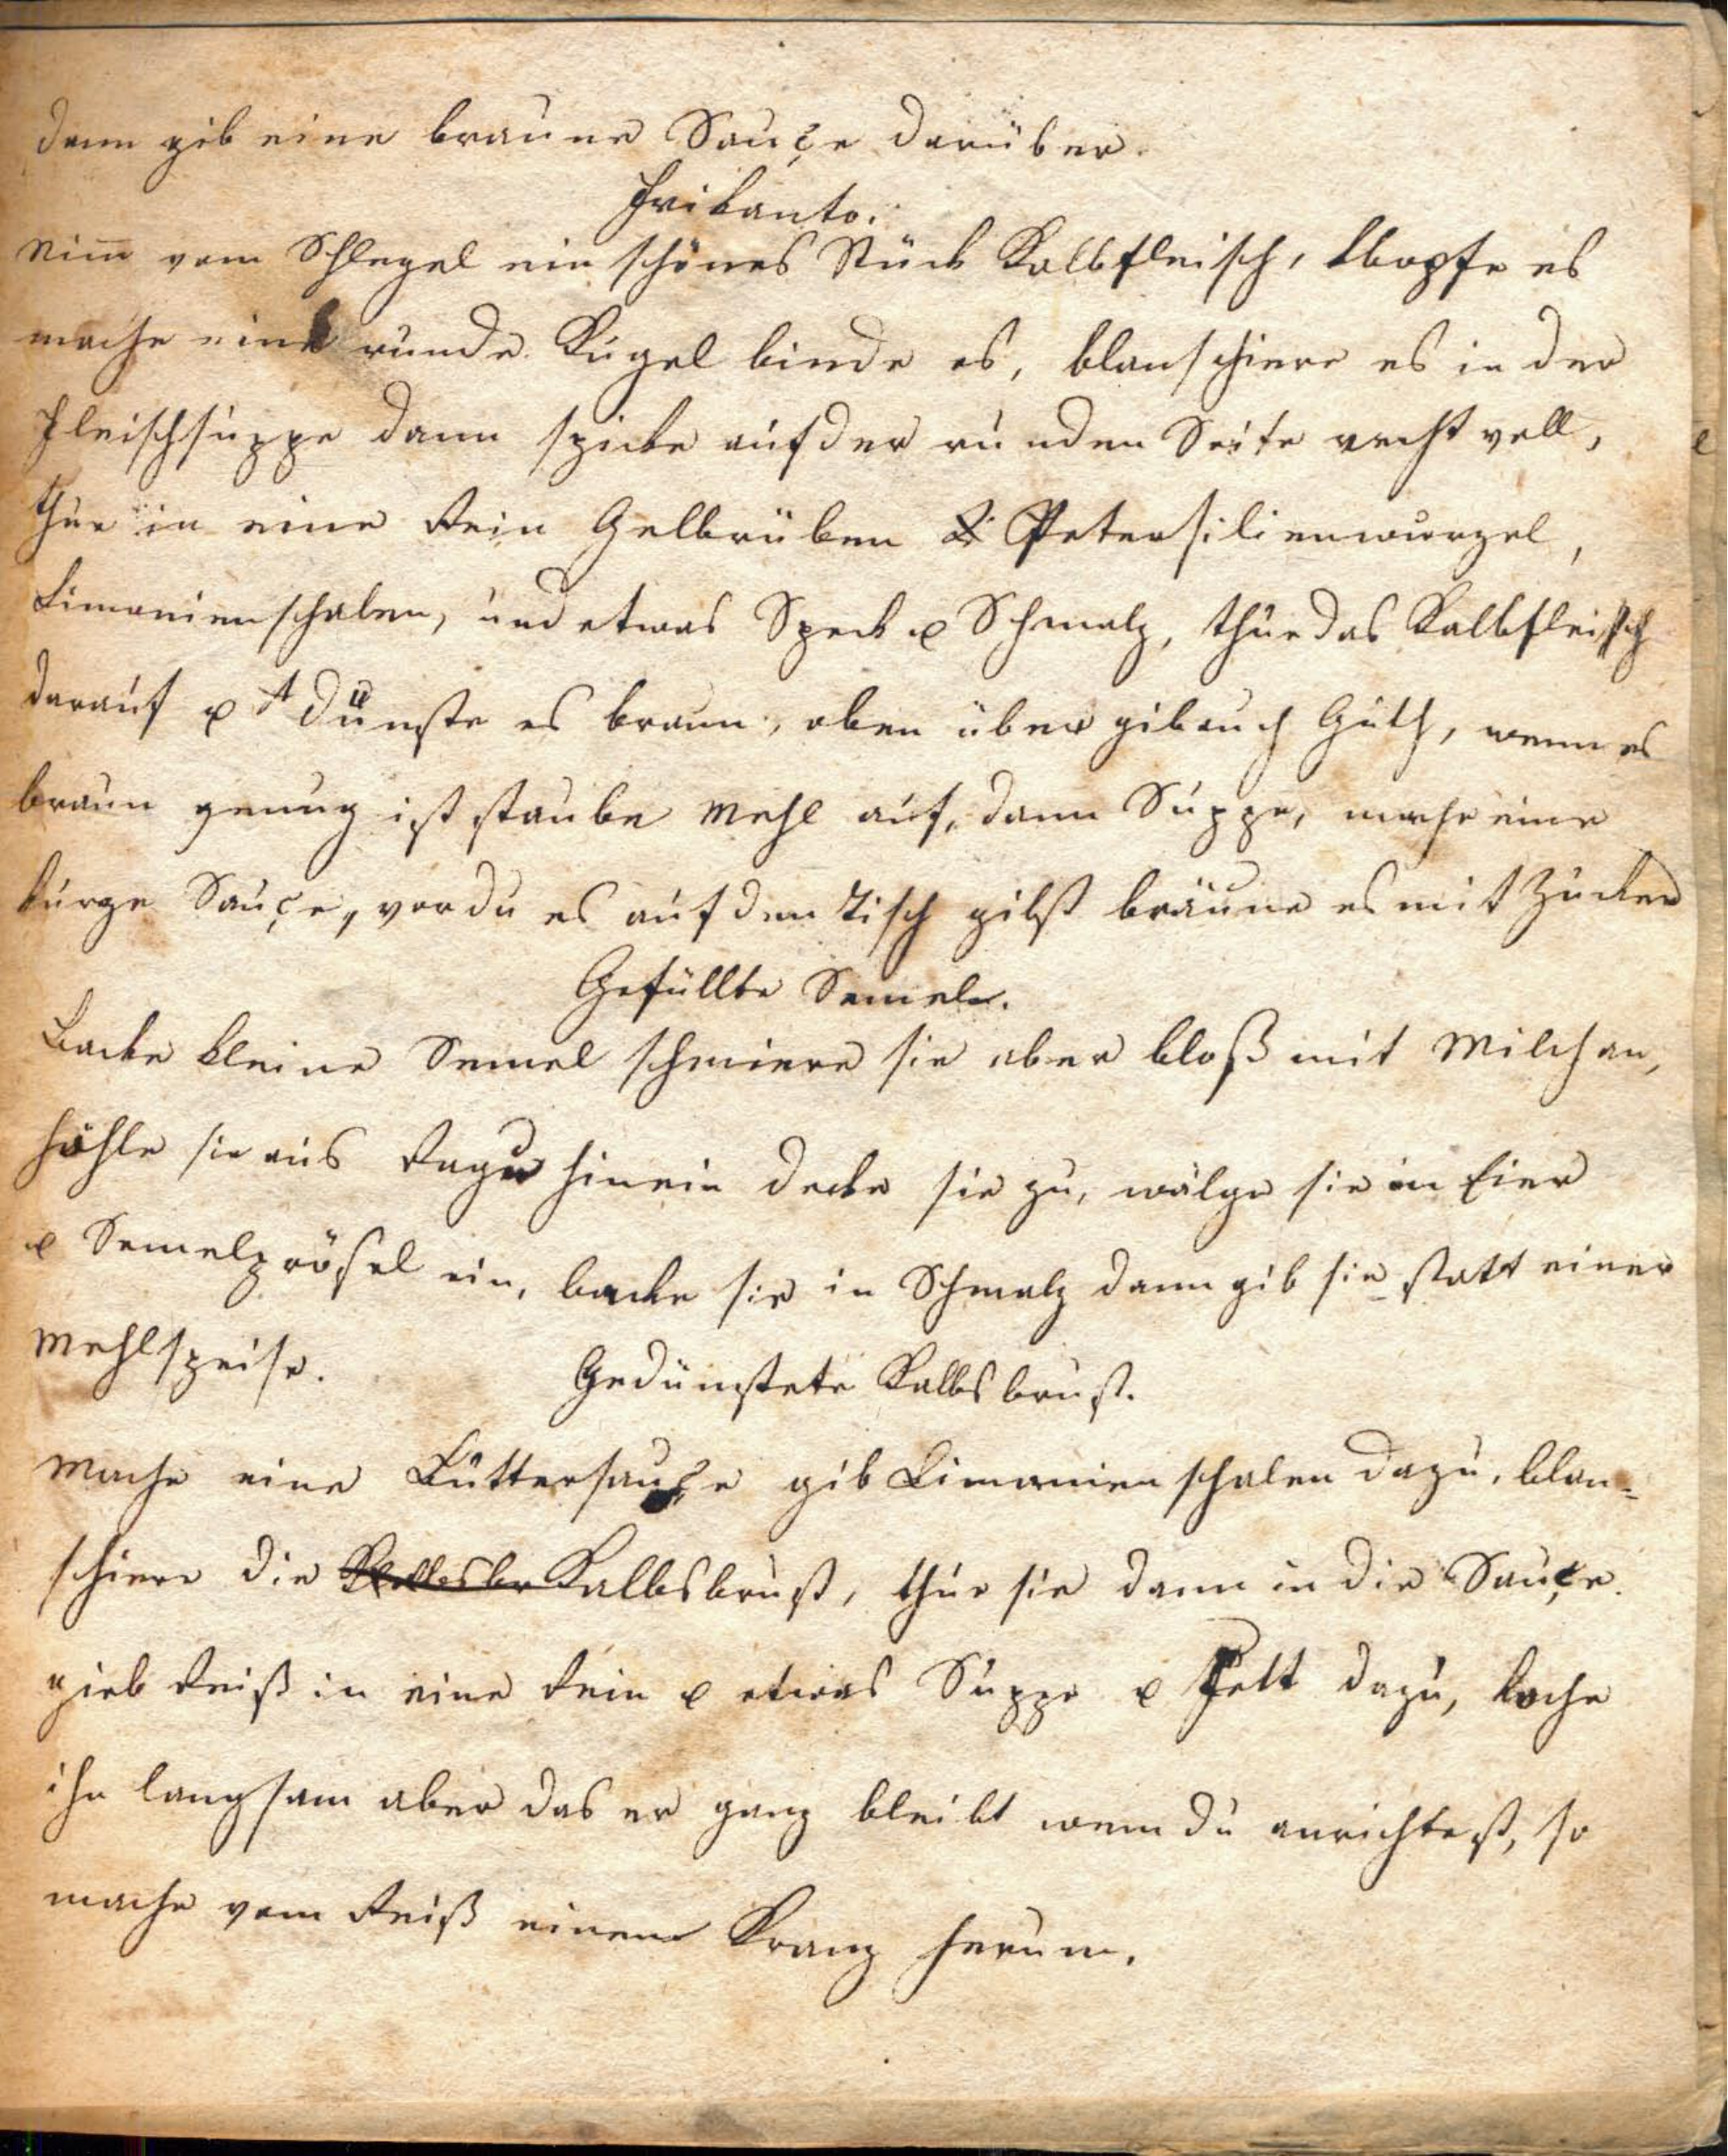 dann gib eine braune Sauçe darüber.
Frikanto.
Nim̅ vom Schlegel ein schönes Stück Kalbfleisch, klopfe es
mache eine runde Kugel binde es, blanschiere es in der
Fleischsuppe dann spicke auf der runden Seite recht voll,
thue in eine Rein Gelbrüben & Petersilienwurzel,
Limonienschalen, und etwas Speck & Schmalz, thue das Kalbfleisch
darauf & dünste es braun, oben über gib auch Gluth, wenn es
braun genug ist staube Mehl auf, dann Suppe, mache eine
kurze Sauçe, vor du es auf den Tisch gibst bräune es mit Zucker
Gefüllte Semeln.
Backe kleine Semel schmiere sie aber bloß mit Milch an,
höhle sie aus Ragu hinein decke sie zu, wälze sie in Eier
& Semelprösel ein, backe sie in Schmalz dann gib sie statt einer
Mehlspeise.
Gedünstete Kalbsbrust.
Mache eine Buttersauçe gib Limonienschalen dazu, blan=
schiere die Kalbsbrust, thue sie dann in die Sauçe.
gieb Reiß in eine Rein & etwas Suppe & Fett dazu, koche
ihn langsam aber das er ganz bleibt wenn du anrichtest, so
mache vom Reiß einen Kranz herum.